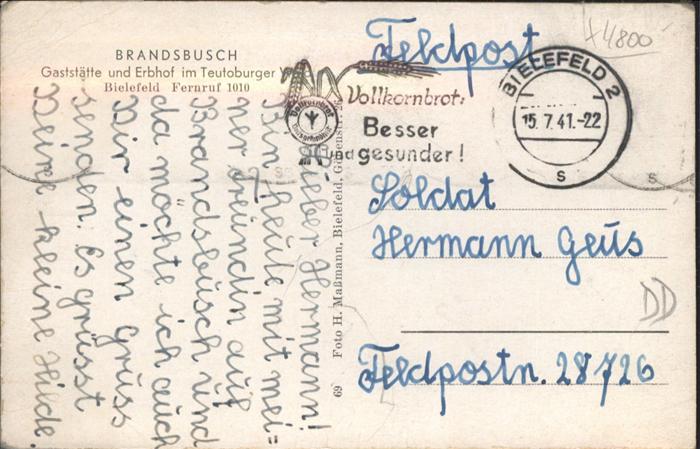 BRANDSBUSCH
Gaststätte und Erbhof im Teutoburger
Bielefeld Fernruf 1010
Lieber Hermann!
Bin heute mit mei=
ner Freundin auf
Brandsbusch und
da möchte ich auch
Dir einen Gruss
senden. Es grüsst
Deine kleine Hilde.
69 Foto H. Maßmann, Bielefeld,
Feldpost
44800
Vollkornbrot:
Besser
und gesunder!
Vollkornbrot
BIELEFELD 2
15.7.41.-22
s
Soldat
Hermann Geüs
DD
Feldpostn. 28726